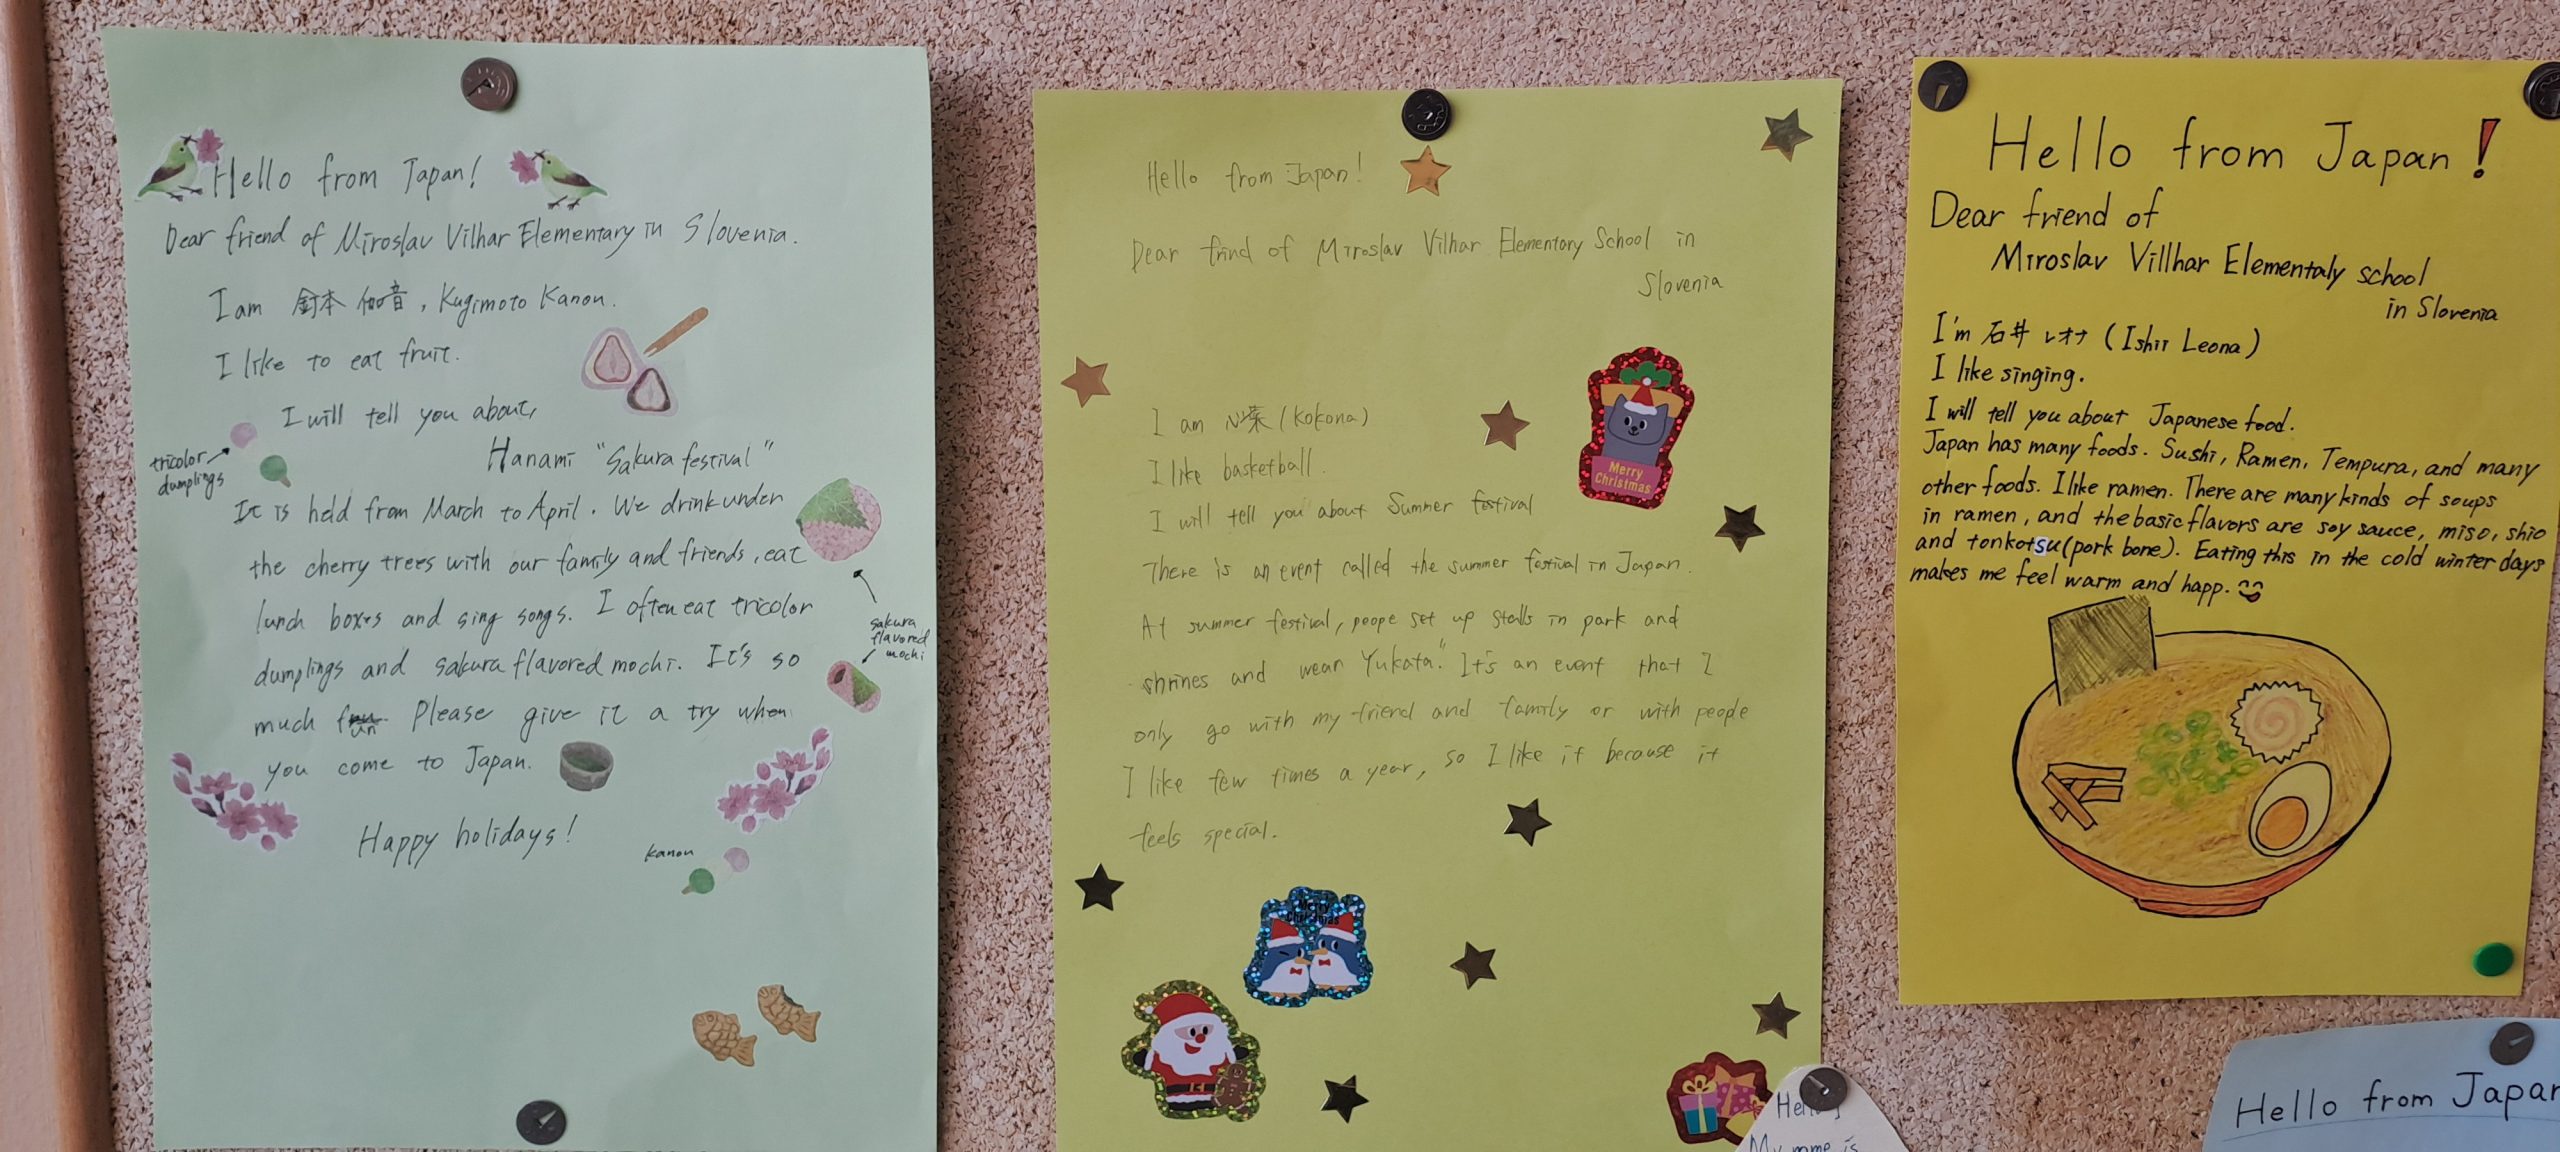 Hello from Japan!
Dear friend of Miroslav Vilhar Elementary in Slovenia.
I am 釘本 伽音, Kugimoto Kanon.
I like to eat fruit.
I will tell you about,
Hanami "Sakura festival"
tricolor
dumplings
It is held from March to April. We drink under
the cherry trees with our family and friends, eat
lunch boxes and sing songs. I often eat tricolor
dumplings and sakura flavored mochi. It's so
much fun Please give it a try when
you come to Japan.
sakura
flavored
mochi
Happy holidays!
kanon
Hello from Japan!
Dear frind of Miroslav Vilhar Elementary School in
Slovenia
I am 心葉 (Kokona)
I like basketball.
I will tell you about Summer festival
There is an event called the summer festival in Japan.
At summer festival, peope set up stalls in park and
shrines and wear Yukata." It's an event that I
only go with my friend and family or with people
I like few times a year, so I like it because it
feels special.
Merry
Christmas
Merry
Christmas
Hello from Japan!
Dear friend of
Miroslav Villhar Elementaly school
in Slovenia
I'm 石井 レオナ (Ishii Leona)
I like singing.
I will tell you about Japanese food.
Japan has many foods. Sushi, Ramen, Tempura, and many
other foods. I like ramen. There are many kinds of soups
in ramen, and the basic flavors are soy sauce, miso, shio
and tonkotsu (pork bone). Eating this in the cold winter days
makes me feel warm and happ.
My name is
Hello from Japan